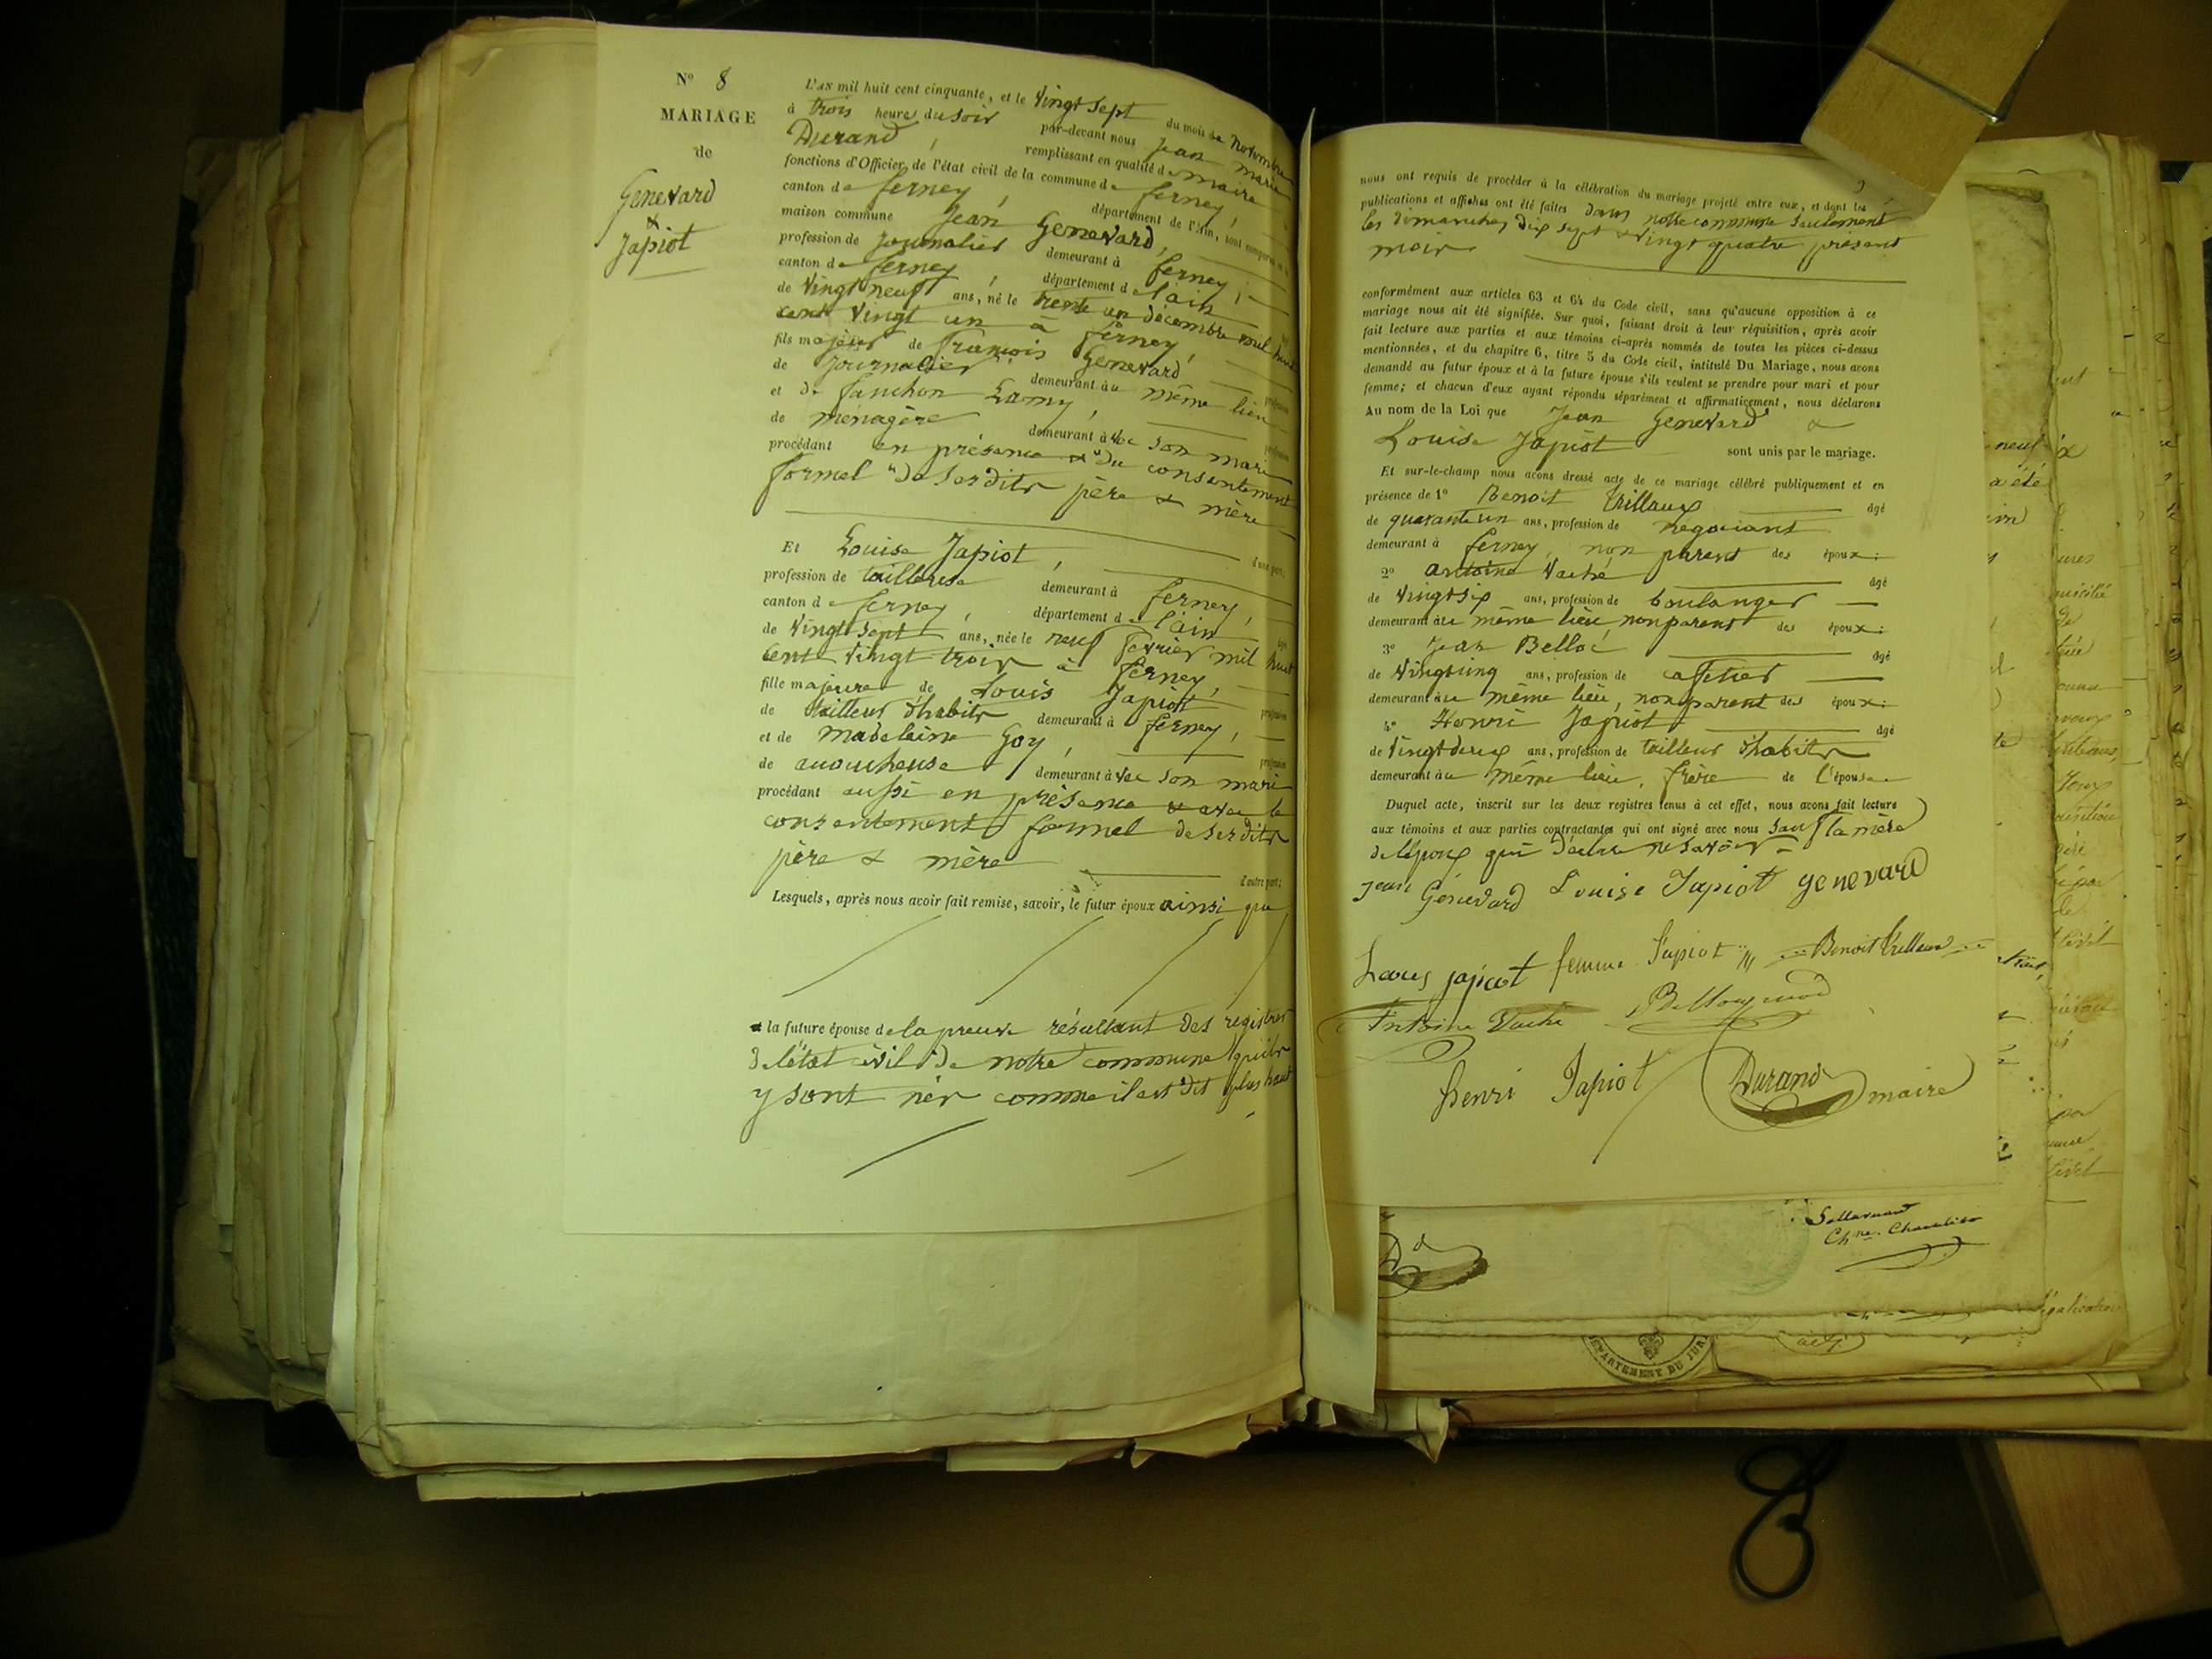 N° 8
MARIAGE
de
Genevard
&
Japiot
L'AN mil huit cent cinquante, et le Vingt Sept du mois de Novembre
à trois heure du soir par-devant nous Jean Marie
Durand, remplissant en qualité de maire
fonctions d'Officier de l'état civil de la commune de ferney,
canton de ferney, département de l'Ain, sont comparus en la
maison commune Jean Genevard,
profession de Journalier demeurant à ferney,
canton de ferney, département de l'ain
de Vingt neuf ans, né le trente un décembre mil huit
cent Vingt un à ferney,
fils majeur de françois Genevard profession
de Journalier demeurant au même lieu
et de fanchon Lamy, profession
de ménagère demeurant avec son mari
procédant en présence & du consentement
formel de ses dits père & mère
d'une part;
Et Louise Japiot,
profession de tailleuse demeurant à ferney,
canton de ferney, département de l'ain
de Vingt Sept ans, née le neuf février mil huit
cent Vingt trois à ferney,
fille majeure de Louis Japiot profession
de tailleur d'habits demeurant à ferney,
et de madelaine Goy, profession
de accoucheuse demeurant avec son mari
procédant aussi en présence & avec le
consentement formel de ses dits
père & mère
d'autre part;
Lesquels, après nous avoir fait remise, savoir, le futur époux ainsi que
la future épouse de la preuve résultant des registres
de l'état civil de notre commune qu'ils
y sont nés comme il est dit plus haut
nous ont requis de procéder à la célébration du mariage projeté entre eux, et dont les
publications et affiches ont été faites dans notre commune seulement
les dimanches dix sept & Vingt quatre présent
mois
conformément aux articles 63 et 64 du Code civil, sans qu'aucune opposition à ce
mariage nous ait été signifiée. Sur quoi, faisant droit à leur réquisition, après avoir
fait lecture aux parties et aux témoins ci-après nommés de toutes les pièces ci-dessus
mentionnées, et du chapitre 6, titre 5 du Code civil, intitulé Du Mariage, nous avons
demandé au futur époux et à la future épouse s'ils veulent se prendre pour mari et pour
femme; et chacun d'eux ayant répondu séparément et affirmativement, nous déclarons
Au nom de la Loi que Jean Genevard &
Louise Japiot sont unis par le mariage.
Et sur-le-champ nous avons dressé acte de ce mariage célébré publiquement et en
présence de 1° Benoit Trilloux âgé
de quarante un ans, profession de négociant
demeurant à ferney, non parent des époux:
2° antoine Vaché âgé
de Vingt six ans, profession de boulanger
demeurant au même lieu non parent des époux:
3° Jean Belloc âgé
de Vingt cinq ans, profession de caffetier
demeurant au même lieu, non parent des époux:
4° Henri Japiot âgé
de Vingt deux ans, profession de tailleur d'habits
demeurant au même lieu, frère de l'épouse
Duquel acte, inscrit sur les deux registres tenus à cet effet, nous avons fait lecture
aux témoins et aux parties contractantes qui ont signé avec nous sauf la mère
de l'époux qui déclare ne savoir
Jean Genevard Louise Japiot genevard
Louis japiot femme Japiot Benoit Trilloux
Antoine Vaché
Henri Japiot Durand maire
DÉPARTEMENT DU JURA